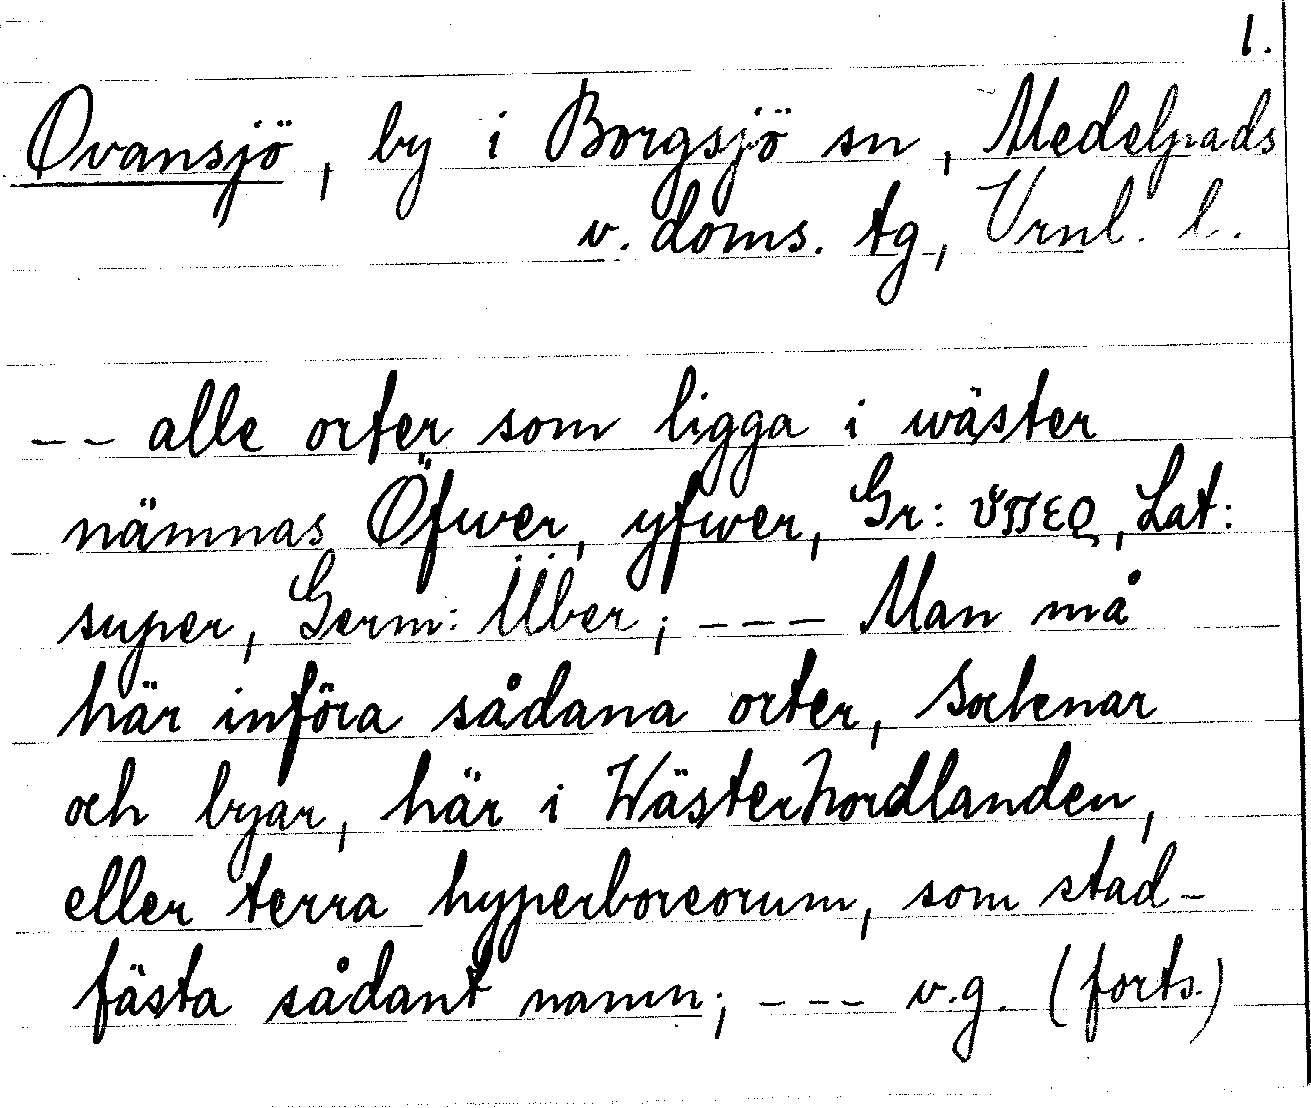 1.
Ovansjö, by i Borgsjö sn, Medelpads
v. doms. tg, Vrnl. l.
-- alle orter som ligga i wäster
nämnas Öfwer, yfwer, Gr: ὑπερ, Lat:
super, Germ: Über; --- Man må
här införa sådana orter, Soknar
och byar, här i WästerNordlanden,
eller terra hyperboreorum, som stad-
fästa sådant namn; --- v.g. (forts.)